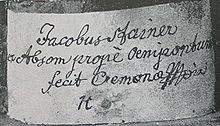 Jacobus Stainer
Absom propè Oenipontum
fecit Cremono
16